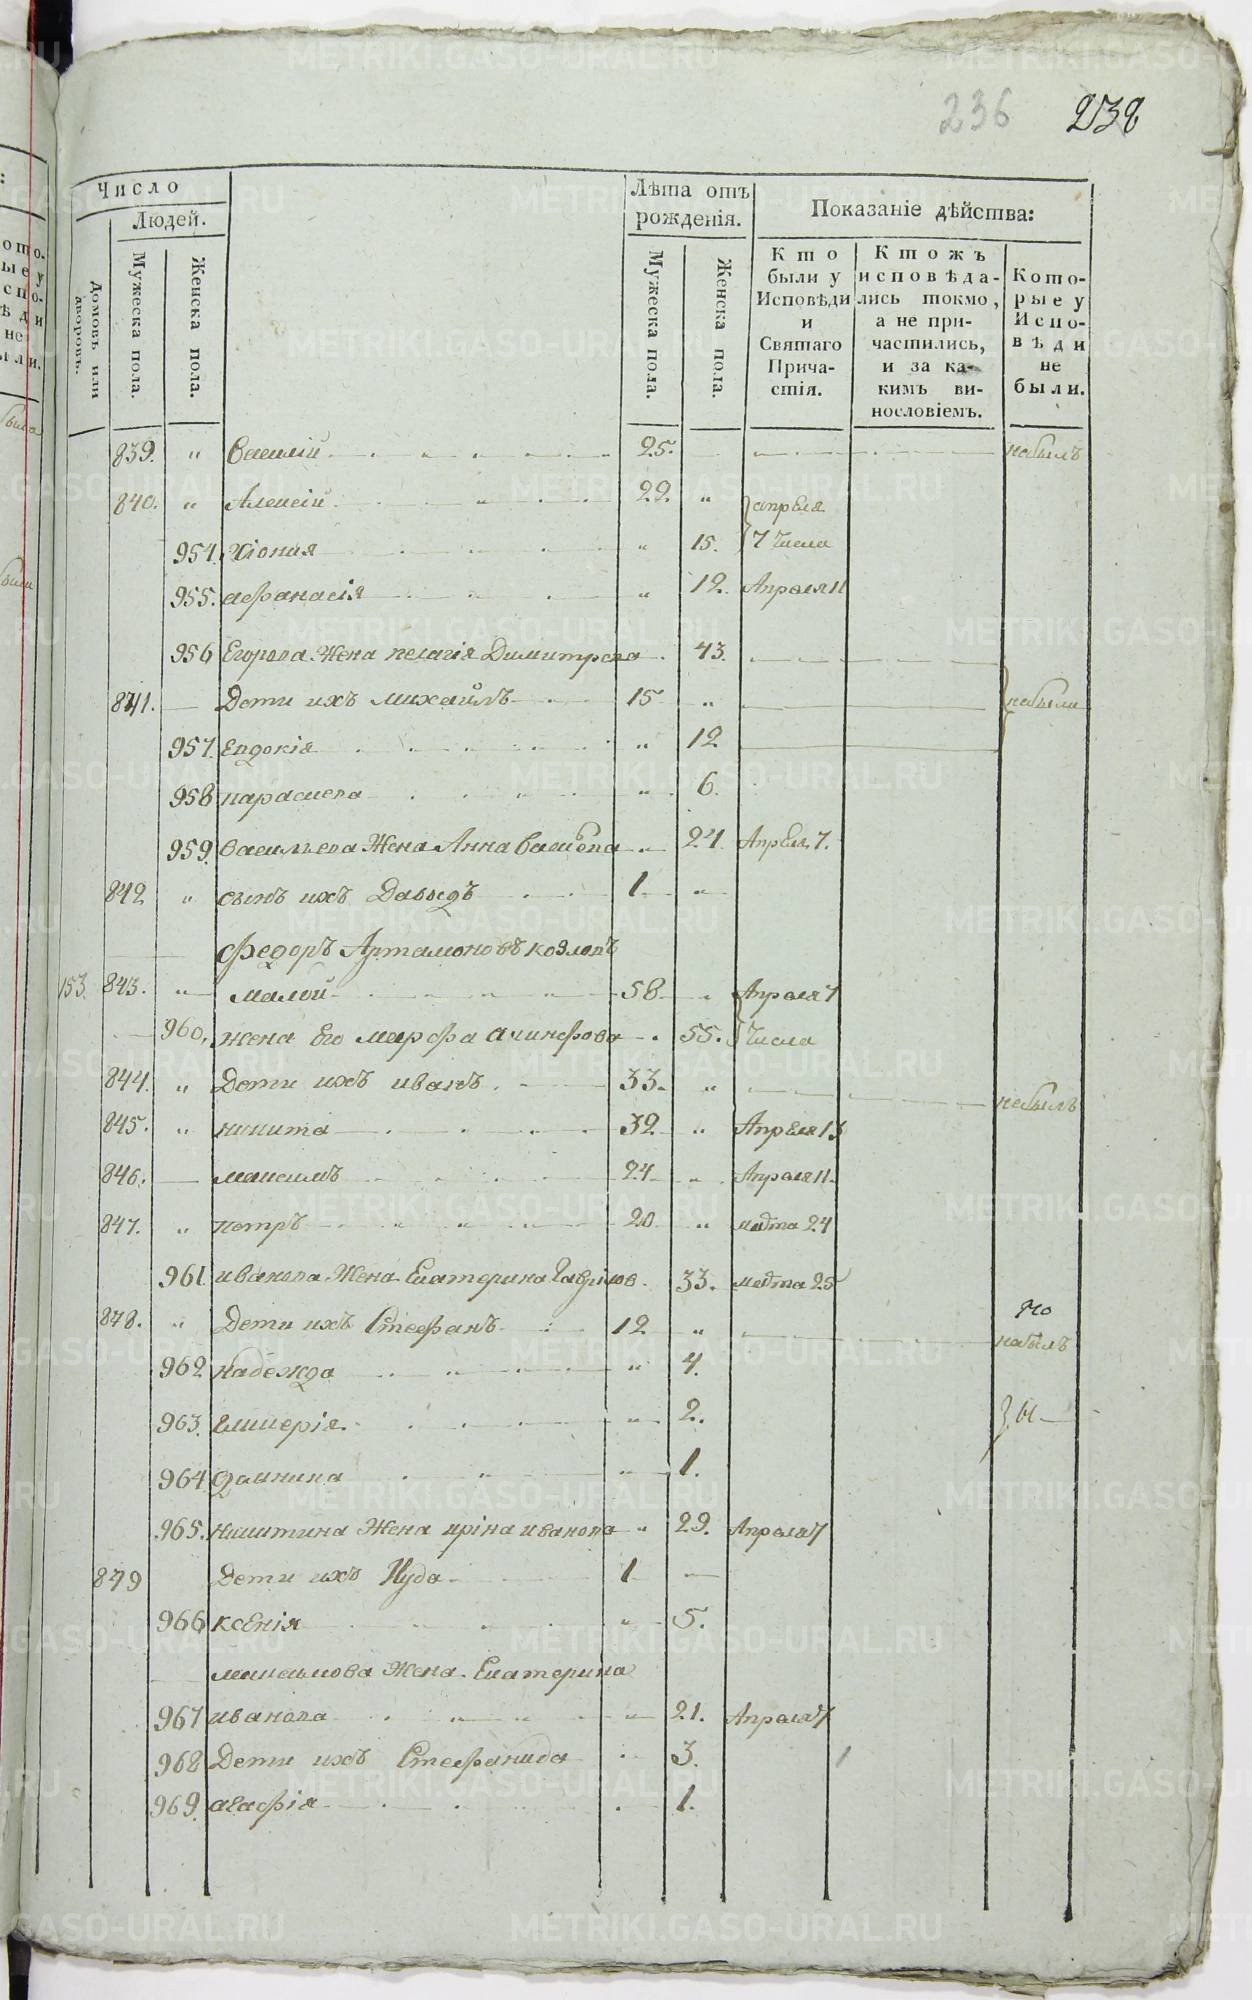 236 238
Число
Людей.
Домовъ или дворовъ.
Мужеска пола.
Женска пола.
Лѣта отъ рожденія.
Мужеска пола.
Женска пола.
Показаніе дѣйства:
Кто были у Исповѣди и Святаго Причастія.
Ктожъ исповѣдались токмо, а не причастились, и за какимъ винословіемъ.
Которые у Исповѣди не были.
839. " Василій 25. небылъ
840. " Алексѣй 22. " апреля
954. Хіония " 15. 7 числа
955. афанасія " 12. Апреля 11
956 Егорова Жена пелагія Димитрева 43.
841. Дети ихъ михайлъ 15 " небыли
957. Евдокія " 12
958 параскева " 6.
959. Васильева Жена Анна " 24. Апреля 7.
842 " сынъ ихъ Давыдъ 1 "
Федоръ Артамоновъ козловъ
153. 843. " малой 58 " Апреля 7
960. жена Его марфа 55. числа
844. " Дети ихъ иванъ 33. " небылъ
845. " никита 32 " Апреля 13
846. максимъ 24 " Апреля 11.
847. " петръ 20 " марта 24
961 иванова Жена Екатерина Гаврилов 33. марта 25
848. " Дети ихъ Стефанъ 12 " небылъ
962 надежда " 4.
963. " 2.
964 " 1.
965. никитина Жена ирина иванова " 29. Апреля 7
849 Дети ихъ Иуда 1
966 ксенія " 5.
максимова Жена Екатерина
967 иванова " 21. Апреля 7
968 Дети ихъ Стефанида 3.
969. агафія 1.